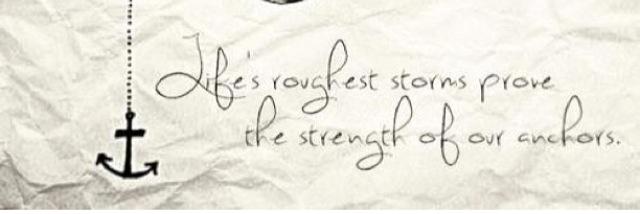 Life's roughest storms prove
the strength of our anchors.